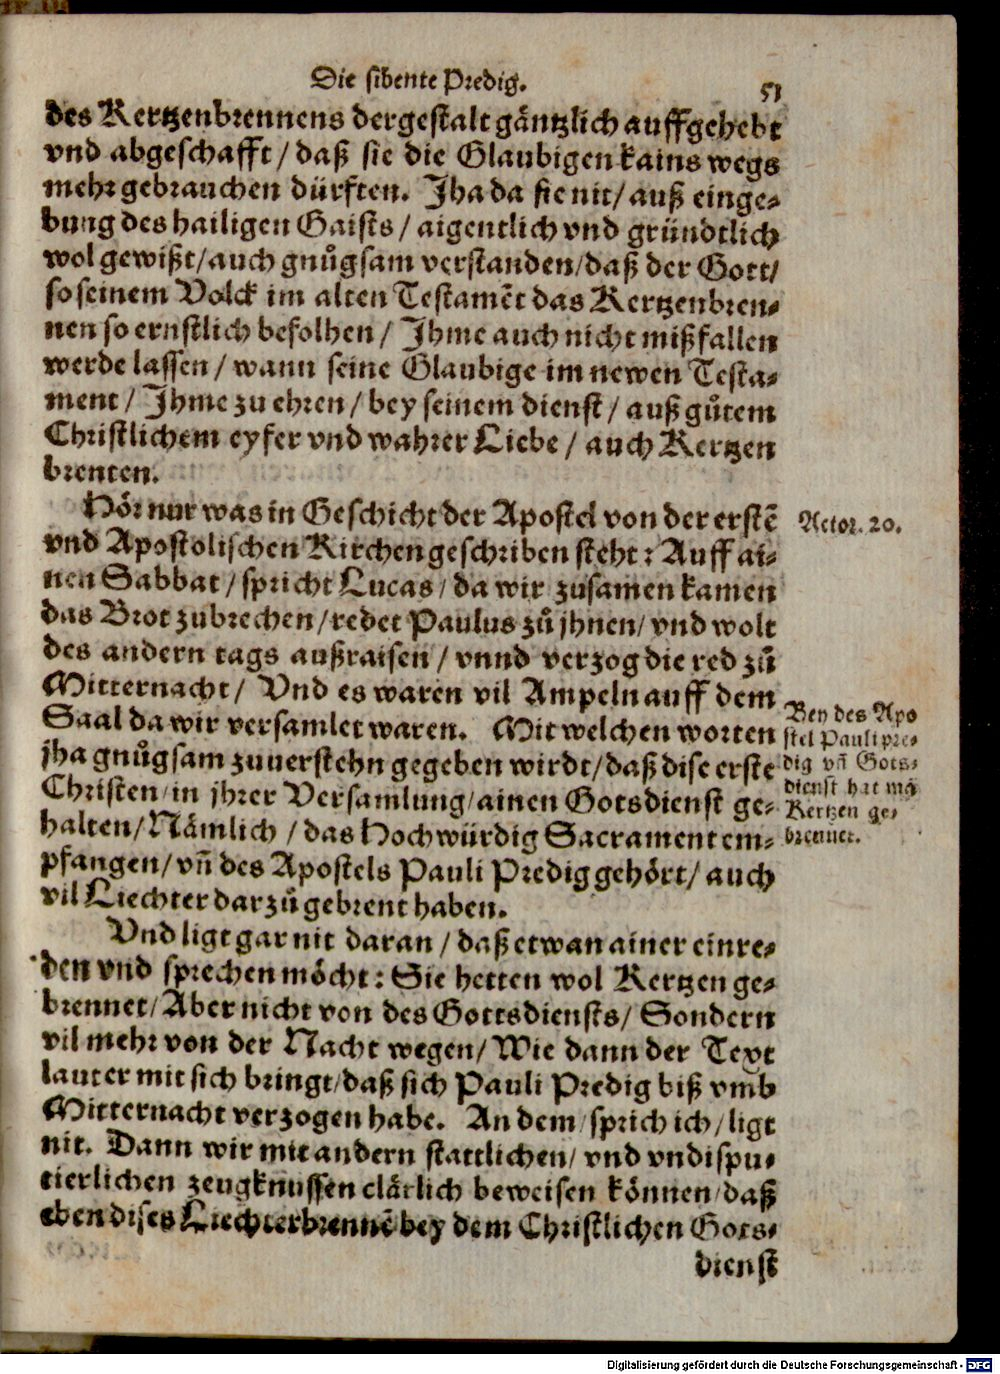 Die sibente Predig.
51
des Kertzenbrennens dergestalt gäntzlich auffgehebt
vnd abgeschafft / daß sie die Glaubigen kains wegs
mehr gebrauchen dürften. Jha da sie nit / auß einge-
bung des hailigen Gaists / aigentlich vnd gründtlich
wol gewißt / auch gnůgsam verstanden / daß der Gott /
so seinem Volck im alten Testamẽt das Kertzenbren-
nen so ernstlich befolhen / Jhme auch nicht mißfallen
werde lassen / wann seine Glaubige im newen Testa-
ment / Jhme zu ehren / bey seinem dienst / auß gůtem
Christlichem eyfer vnd wahrer Liebe / auch Kertzen
brenten.
Hör nur was in Geschicht der Apostel von der erstẽ
Actor. 20.
vnd Apostolischen Kirchen geschriben steht: Auff ai-
nen Sabbat / spricht Lucas / da wir zusamen kamen
das Brot zubrechen / redet Paulus zů jhnen / vnd wolt
des andern tags außraisen / vnnd verzog die red zů
Mitternacht / Vnd es waren vil Ampeln auff dem
Saal da wir versamlet waren. Mit welchen worten
jha gnůgsam zuuerstehn gegeben wirdt / daß dise erste
Christen / in jhrer Versamlung / ainen Gotsdienst ge-
halten / Nämlich / das Hochwürdig Sacrament em-
pfangen / vñ des Apostels Pauli Predig gehört / auch
vil Liechter darzů gebrent haben.
Bey des Apo
stel Pauli pre-
dig vñ Gots-
dienst hat mã
Kertzen ge-
brennet.
Vnd ligt gar nit daran / daß etwan ainer einre-
den vnd sprechen möcht: Sie hetten wol Kertzen ge-
brennet / Aber nicht von des Gottsdiensts / Sondern
vil mehr von der Nacht wegen / Wie dann der Text
lauter mit sich bringt / daß sich Pauli Predig biß vmb
Mitternacht verzogen habe. An dem / sprich ich / ligt
nit. Dann wir mit andern stattlichen / vnd vndispu-
tierlichen zeugknussen clärlich beweisen können / daß
eben dises Liechterbrennẽ bey dem Christlichen Gots-
dienst
Digitalisierung gefördert durch die Deutsche Forschungsgemeinschaft - DFG